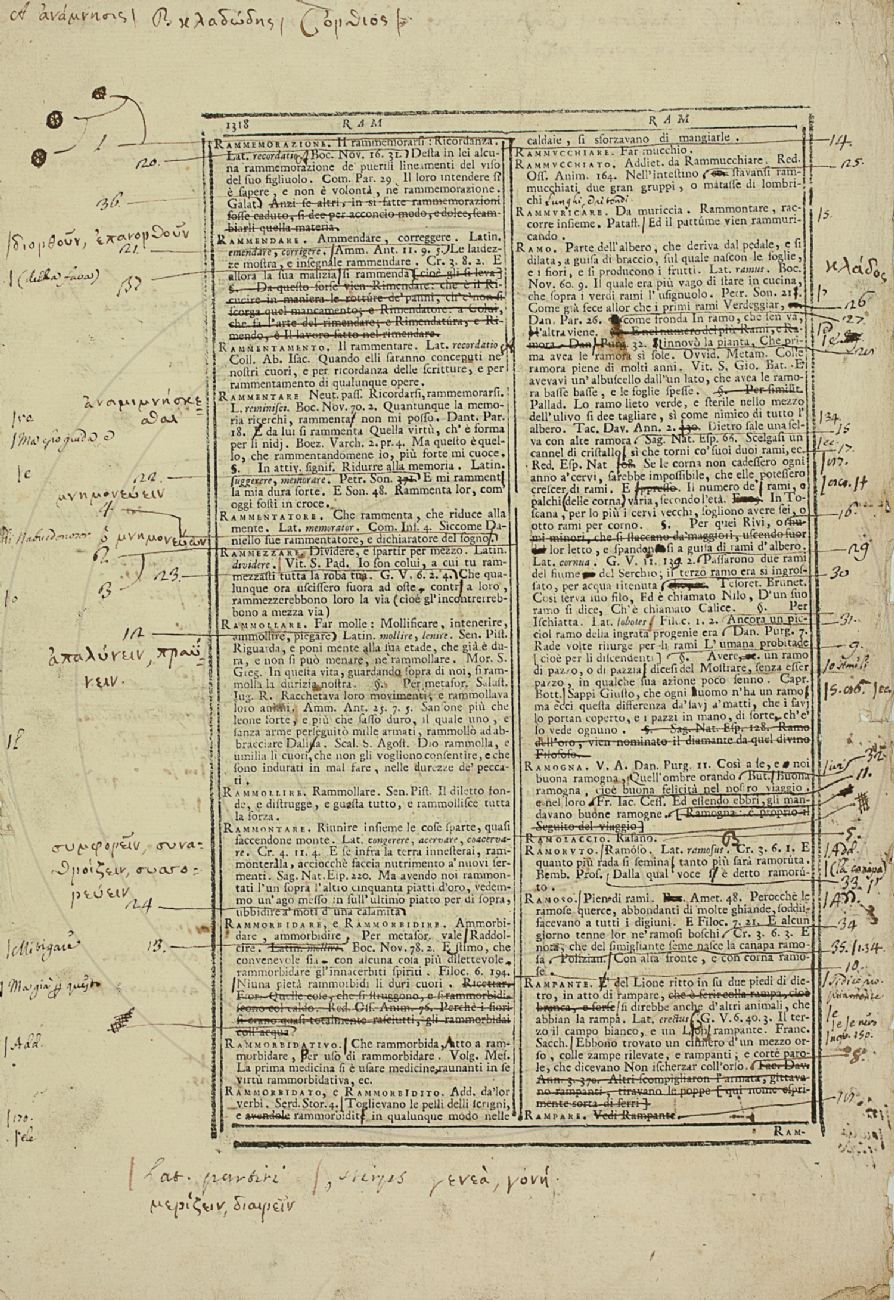 A ἀνάμνησις | B. κλαδώδης | C ὄρθιος |
1318 RAM RAM
RAMMEMORAZIONE. Il rammemorarsi: Ricordanza.
Lat. recordatio. Boc. Nov. 16. 31. Desta in lei alcu-
na rammemorazione de' puerili lineamenti del viso
del suo figliuolo. Com. Par. 29. Il loro intendere si
è sapere, e non è volontà, ne rammemorazione.
Galat. Anzi se altri, in sì fatte rammemorazioni
fosse caduto, si dee per acconcio modo, e dolce, scam-
biarli quella materia.
RAMMENDARE. Ammendare, correggere. Latin.
emendare, corrigere. Amm. Ant. 11. 9. 5. Le laidez-
ze mostra, e insegnale rammendare. Cr. 3. 8. 2. E
allora la sua malizia si rammenda [cioè gli si leva]
§. Da questo forse vien Rimendare: che è il Ri-
cucire in maniera le rotture de' panni, ch'e' non si
scorga quel mancamento; e Rimendatore: a Colui,
che fa l'arte del rimendare; e Rimendatura, e Ri-
mendo, è Il lavoro fatto nel rimendare.
RAMMENTAMENTO. Il rammentare. Lat. recordatio
Coll. Ab. Isac. Quando elli saranno conceputi ne'
nostri cuori, e per ricordanza delle scritture, e per
rammentamento di qualunque opere.
RAMMENTARE. Neut. pass. Ricordarsi, rammemorarsi.
L. reminisci. Boc. Nov. 70. 2. Quantunque la memo-
ria ricerchi, rammentar non mi posso. Dant. Par.
18. E da lui si rammenta Quella virtù, ch' è forma
per li nidi. Boez. Varch. 2. pr. 4. Ma questo è quel-
lo, che rammentandomene io, più forte mi cuoce.
§. In attiv. signif. Ridurre alla memoria. Latin.
suggerere, memorare. Petr. Son. E mi ramment
la mia dura sorte. E Son. 48. Rammenta lor, com'
oggi fosti in croce.
RAMMENTATORE. Che rammenta, che riduce alla
mente. Lat. memorator. Com. Inf. 4. Siccome Da-
niello fue rammentatore, e dichiaratore del sogno
RAMMEZZARE. Dividere, e spartir per mezzo. Latin.
dividere. Vit. S. Pad. Io son colui, a cui tu ram-
mezzasti tutta la roba tua. G. V. 6. 2. 4. Che qua-
lunque ora uscissero fuora ad oste, contr a loro,
rammezzerebbono loro la via (cioè gl'incontrereb-
bono a mezza via)
RAMMOLLARE. Far molle: Mollificare, intenerire,
ammollire, piegare. Latin. mollire, lenire. Sen. Pist.
Riguarda, e poni mente alla sua etade, che già è du-
ra, e non si può menare, ne rammollare. Mor. S.
Greg. In questa vita, guardando sopra di noi, si ram-
molla la durizia nostra. §. Per metafor. Salust.
Jug. R. Racchetava loro movimenti; e rammollava
loro animi. Amm. Ant. 23. 7. 5. Sansone più che
leone forte, e più che sasso duro, il quale uno, e
sanza arme perseguitò mille armati, rammollò ad ab-
bracciare Dalila. Scal. S. Agost. Dio rammolla, e
umilia li cuori, che non gli vogliono consentire, e che
sono indurati in mal fare, nelle durezze de' pecca-
ti.
RAMMOLLIRE. Rammollare. Sen. Pist. Il diletto fon-
de, e distrugge, e guasta tutto, e rammollisce tutta
la forza.
RAMMONTARE. Riunire insieme le cose sparte, quasi
faccendone monte. Lat. congerere, acervare, coacerva-
re. Cr. 4. 11. 4. E se infra la terra innesterai, ram-
monteralla, acciocchè faccia nutrimento a' nuovi ser-
menti. Sag. Nat. Esp. 220. Ma avendo noi rammon-
tati l'un sopra l'altro cinquanta piatti d'oro, vedem-
mo un'ago messo in sull'ultimo piatto per di sopra,
ubbidire a' moti d'una calamita
RAMMORBIDARE, e RAMMORBIDIRE. Ammorbi-
dare, ammorbidire. Per metafor. vale Raddol-
cire. Latin. mollire. Boc. Nov. 78. 2. E stimo, che
convenevole sia, con alcuna cosa più dilettevole,
rammorbidare gl'innacerbiti spiriti. Filoc. 6. 194.
Niuna pietà rammorbidi li duri cuori. Ricettar.
Fior. Quelle cose, che si struggono, e si rammorbidi-
scono col caldo. Red. Oss. Anim. 76. Perchè i fiori
si erano quasi totalmente rasciutti, gli rammorbidai
coll'acqua
RAMMORBIDATIVO. Che rammorbida, Atto a ram-
morbidare, Per uso di rammorbidare. Volg. Mes.
La prima medicina si è usare medicine raunanti in se
virtù rammorbidativa, ec.
RAMMORBIDATO, e RAMMORBIDITO. Add. da' lor
verbi. Serd. Stor. 4. Toglievano le pelli delli scrigni,
e avendole rammorbidite in qualunque modo nelle
caldaie, si sforzavano di mangiarle.
RAMMUCCHIARE. Far mucchio.
RAMMUCCHIATO. Addiet. da Rammucchiare. Red.
Oss. Anim. 164. Nell'intestino stavansi ram-
mucchiati due gran gruppi, o matasse di lombri-
chi
RAMMURICARE. Da muriccia. Rammontare, rac-
corre insieme. Pataff. Ed il pattume vien rammuri-
cando.
RAMO. Parte dell'albero, che deriva dal pedale, e si
dilata, a guisa di braccio, sul quale nascon le foglie,
e i fiori, e si producono i frutti. Lat. ramus. Boc.
Nov. 60. 9. Il quale era più vago di stare in cucina,
che sopra i verdi rami l'usignuolo. Petr. Son. 21
Come già fece allor che i primi rami Verdeggiar,
Dan. Par. 26. come fronda In ramo, che sen va,
H'altra viene. §. E nel numero del più Rami, e Ra-
mora. Dan. Purg. 32. S'innovò la pianta, Che pri-
ma avea le ramora sì sole. Ovvid. Metam. Colle
ramora piene di molti anni. Vit. S. Gio. Bat. E
avevavi un'albuscello dall'un lato, che avea le ramo-
ra basse basse, e le foglie spesse. §. Per similit.
Pallad. Lo ramo lieto verde, e sterile nello mezzo
dell'ulivo si dee tagliare, sì come nimico di tutto l'
albero. Tac. Dav. Ann. 2. Dietro sale una sel-
va con alte ramora. Sag. Nat. Esp. 66. Scelgasi un
cannel di cristallo, sì che torni co' suoi duoi rami, ec.
Red. Esp. Nat. Se le corna non cadessero ogni
anno a' cervi, sarebbe impossibile, che elle potessero
crescer di rami. E Il numero de' rami, o
palchi delle corna varia, secondo l'età. In To-
scana, per lo più i cervi vecchi, sogliono avere sei, o
otto rami per corno. §. Per quei Rivi, o fiu-
mi minori, che si staccano da' maggiori, uscendo fuor
del lor letto, e spandonsi a guisa di rami d'albero.
Lat. cornua. G. V. 11. Passarono due rami
del fiume del Serchio; il terzo ramo era sì ingros-
sato, per acqua ritenuta Tesoret. Brunet.
Così serva suo filo, Ed è chiamato Nilo, D'un suo
ramo si dice, Ch'è chiamato Calice. §. Per
Ischiatta. Lat. soboles. Filc. 1. 2. Ancora un pic-
ciol ramo della ingrata progenie era. Dan. Purg. 7.
Rade volte risurge per li rami L'umana probitade
[cioè per li discendenti] §. Avere un ramo
di pazzo, o di pazzia, dicesi del Mostrare, senza esser
pazzo, in qualche sua azione poco senno. Capr.
Bott. Sappi Giusto, che ogni huomo n'ha un ramo,
ma ecci questa differenza da' savj a' matti, che i savj
lo portan coperto, e i pazzi in mano, di sorte, ch'e'
lo vede ognuno. §. Sag. Nat. Esp. 128. Ramo
dell'oro, vien nominato il diamante da quel divino
Filosofo.
RAMOGNA. V. A. Dan. Purg. 11. Così a se, e noi
buona ramogna, Quell'ombre orando. But. Buona
ramogna, cioè buona felicità nel nostro viaggio
e nel loro. Fr. Iac. Cess. Ed essendo ebbri, gli man-
davano buone ramogne. [Ramogna: è proprio il
Seguito del viaggio]
RAMOLACCIO. Rafano.
RAMORUTO. Ramoso. Lat. ramosus. Cr. 3. 6. 1. E
quanto più rada si semina, tanto più sarà ramoruta.
Bemb. Pros. Dalla qual voce s'è detto ramoru-
to.
RAMOSO. Pien di rami. Amet. 48. Perocchè le
ramose querce, abbondanti di molte ghiande, soddis-
facevano a tutti i digiuni. E Filoc. 7. 21. E alcun
giorno tenne lor ne' ramosi boschi. Cr. 3. 6. 3. E
nota, che del simigliante seme nasce la canapa ramo-
sa. Polizian. Con alta fronte, e con corna ramo-
se.
RAMPANTE. E' del Lione ritto in su due piedi di die-
tro, in atto di rampare, che è ferir colla rampa, cioè
branca, e forse si direbbe anche d'altri animali, che
abbian la rampa. Lat. erectus. G. V. 6. 40. 3. Il ter-
zo il campo bianco, e un Lion rampante. Franc.
Sacch. Ebbono trovato un cimiero d'un mezzo or-
so, colle zampe rilevate, e rampanti; e corte paro-
le, che dicevano Non ischerzar coll'orso. Tac. Dav.
Ann. 3. 370. Altri scompigliaron l'armata, gittava-
no rampanti, tiravano le poppe [qui nome espri-
mente sorta di ferri].
RAMPARE. Vedi Rampante.
RAM-
1
20.
36.
διορθοῦν, ἐπανορθοῦν
21.
37.
ἀναμιμνήσκε-
σθαι
22.
μνημονεύειν
4.
μνημονεύων
2.
23.
3
12.
ἁπαλύνειν, πραΰ-
νειν.
συμφορεῖν, συνα-
θροίζειν, συσσω-
ρεύειν
24
13.
Add.
14.
25.
κλάδος
26
27.
15
17.
16
29
30
31.
9.
32.
11.
5.
33.
34
35.
10.
8.
Lat. partiri |, stirps γενεὰ, γονή.
μερίζειν, διαιρεῖν